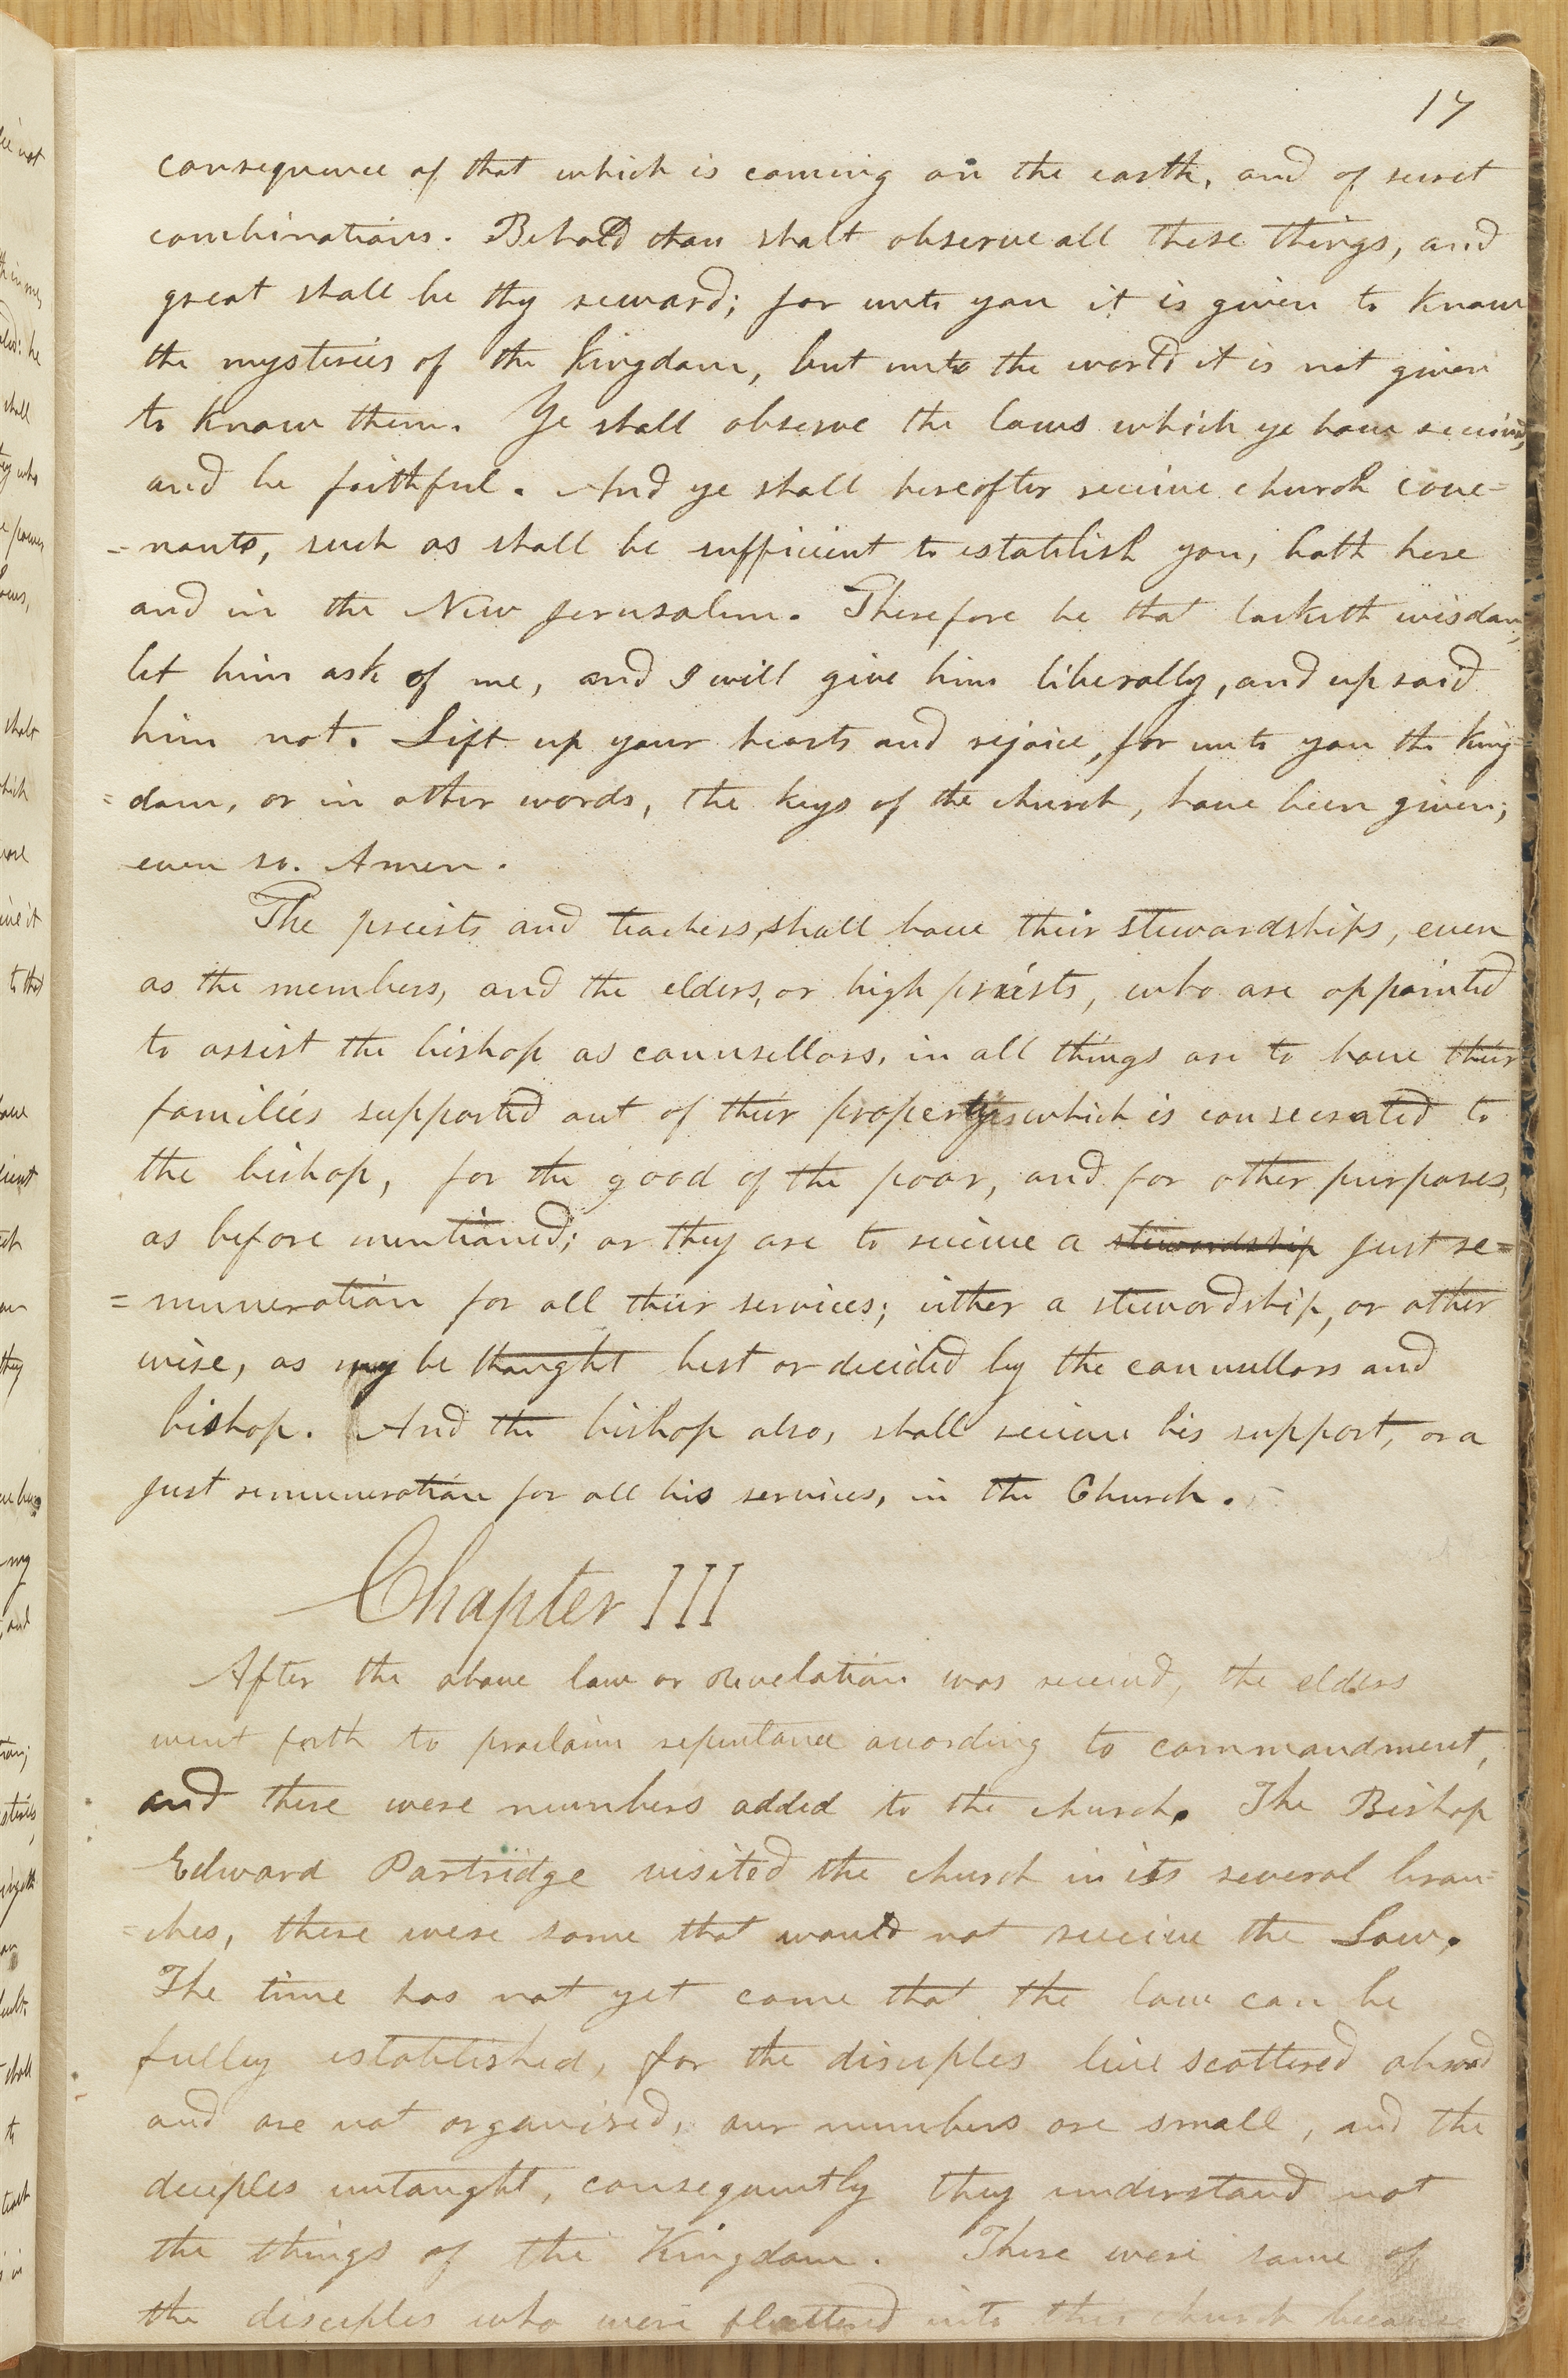 17
consequence of that which is coming on the earth, and of secret
combinations. Behold thou shalt observe all these things, and
great shall be thy reward; for unto you it is given to know
the mysteries of the kingdom, but unto the world it is not given
to know them. Ye shall observe the laws which ye have received,
and be faithful. And ye shall hereafter receive church cove=
=nants, such as shall be sufficient to establish you, both here
and in the New Jerusalem. Therefore he that lacketh wisdom,
let him ask of me, and I will give him liberally, and upraid
him not. Lift up your hearts and rejoice, for unto you the king=
=dom, or in other words, the keys of the church, have been given;
even so. Amen.
The preists and teachers, shall have their stewardships, even
as the members, and the elders, or high priests, who are appointed
to assist the bishop as counsellors, in all things are to have their
families supported out of their property which is consecrated to
the bishop, for the good of the poor, and for other purposes,
as before mentioned; or they are to receive a stewardship just re=
=muneration for all their services; either a stewardship, or other
wise, as may be thought best or decided by the counsellors and
bishop. And the bishop also, shall receive his support, or a
just remuneration for all his services, in the Church.
Chapter III
After the above law or Revelation was received, the elders
went forth to proclaim repentance according to commandment,
and there were numbers added to the church. The Bishop
Edward Partridge visited the church in its several bran=
=ches, there were some that would not receive the Law.
The time has not yet come that the law can be
fully established, for the disciples live scattered abroad
and are not organized, our numbers are small, and the
deciples untaught, consequently they understand not
the things of the Kingdom. There were some of
the disciples who were flattered into this church because